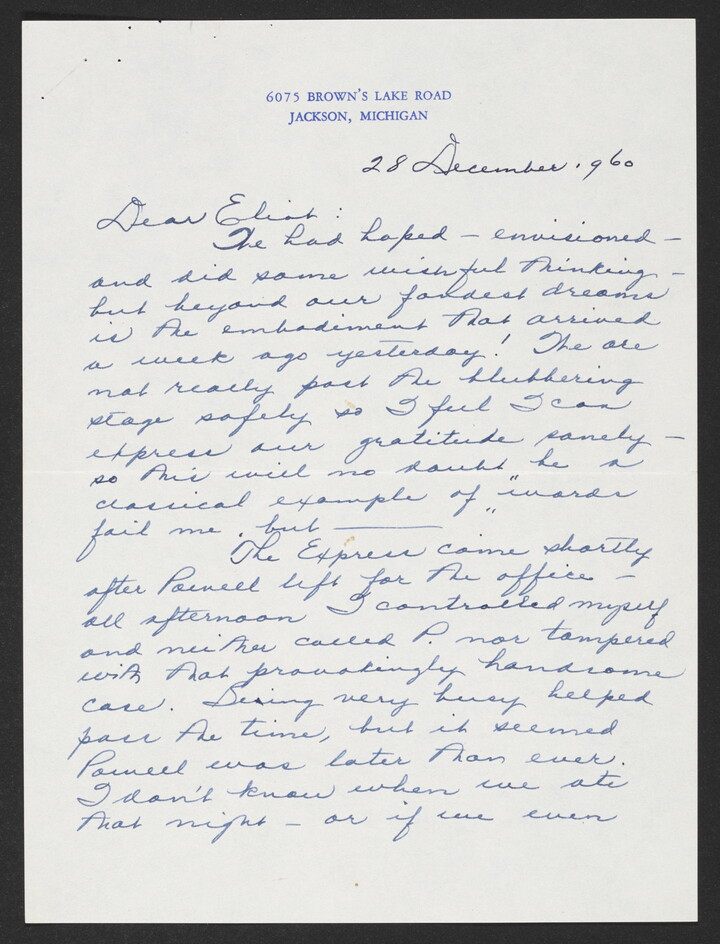 6075 BROWN'S LAKE ROAD
JACKSON, MICHIGAN
28 December 1960
Dear Eliot:
We had hoped — envisioned —
and did some wishful thinking —
but beyond our fondest dreams
is the embodiment that arrived
a week ago yesterday! We are
not really past the blubbering
stage safely so I feel I can
express our gratitude sanely —
so this will no doubt be a
classical example of "words
fail me, but ———"
The Express came shortly
after Powell left for the office —
all afternoon I controlled myself
and neither called P. nor tampered
with that provokingly handsome
case. Being very busy helped
pass the time, but it seemed
Powell was later than ever.
I don't know when we ate
that night — or if we even